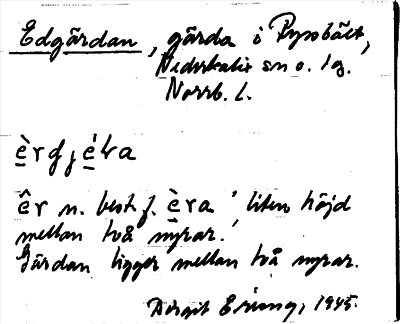 Edgärdan, gärda i Rysbält,
Nederkalix sn o. tg.
Norrb. l.
êr n. best. f. èra 'liten höjd
mellan två myrar.'
Gärdan ligger mellan två myrar.
Birgit Ering, 1945.